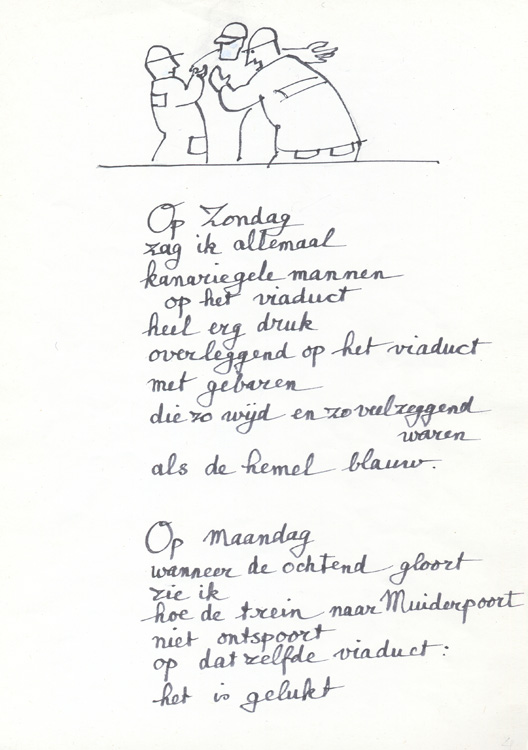 Op Zondag
zag ik allemaal
kanariegele mannen
op het viaduct
heel erg druk
overleggend op het viaduct
met gebaren
die zo wijd en zo veelzeggend
waren
als de hemel blauw.
Op maandag
wanneer de ochtend gloort
zie ik
hoe de trein naar Muiderpoort
niet ontspoort
op dat zelfde viaduct:
het is gelukt